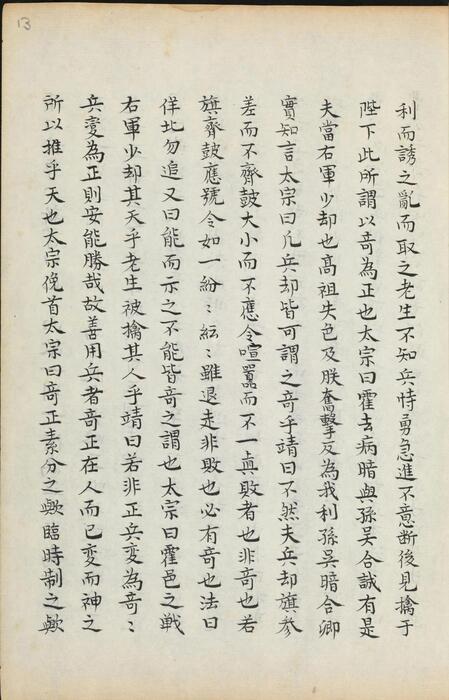 13
利而誘之亂而取之老生不知兵恃勇急進不意断後見擒于
陛下此所謂以竒為正也太宗曰霍去病暗與孫吴合誠有是
夫當右軍少却也高祖失色及朕奮擊反為我利孫吴暗合卿
實知言太宗曰凡兵却皆可謂之竒乎靖曰不然夫兵却旗参
差而不齊鼓大小而不應令喧囂而不一真敗者也非竒也若
旗齊鼓應號令如一紛〻紜〻雖退走非敗也必有竒也法曰
佯北勿追又曰能而示之不能皆竒之謂也太宗曰霍邑之戦
右軍少却其天乎老生被擒其人乎靖曰若非正兵变為竒〻
兵變為正則安能勝哉故善用兵者竒正在人而已变而神之
所以推乎天也太宗俛首太宗曰竒正素分之歟臨時制之歟